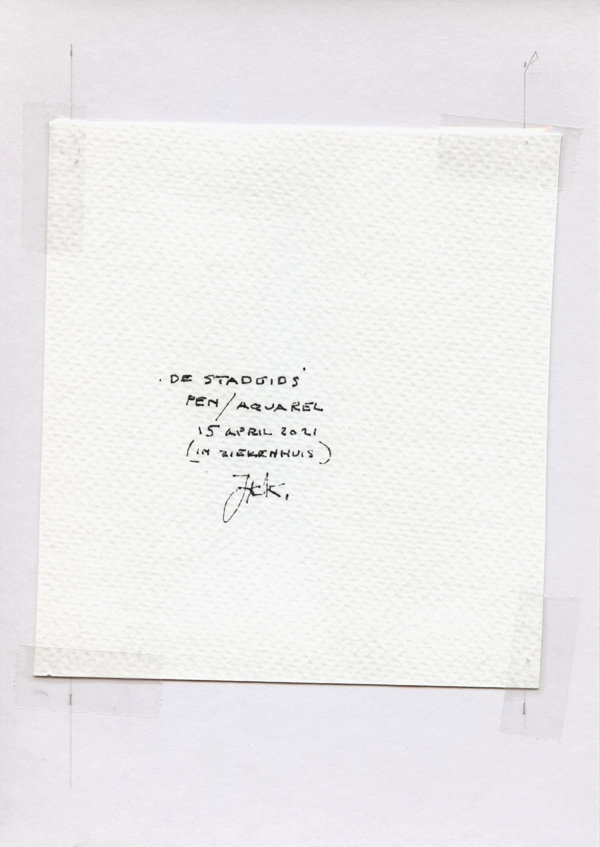 'DE STADGIDS'
PEN/AQUAREL
15 APRIL 2021
(IN ZIEKENHUIS)